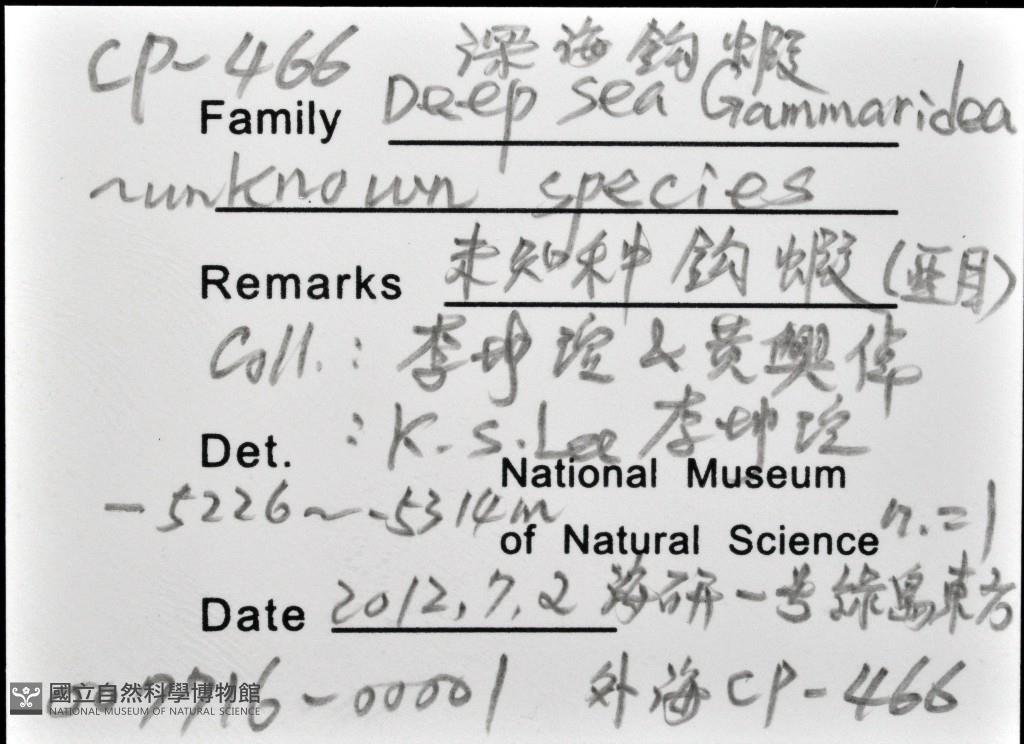 CP-466 深海鈎蝦
Family Deep sea Gammaridea
~unknown species
Remarks 未知科鈎蝦(亜目)
Coll.: 李坤瑄 & 黃興倬
Det. : K.S.Lee 李坤瑄
National Museum
-5226~-5314m
of Natural Science n.=1
Date 2012,7,2 海研一号綠島東方
-00001 外海 CP-466
國立自然科學博物館
NATIONAL MUSEUM OF NATURAL SCIENCE